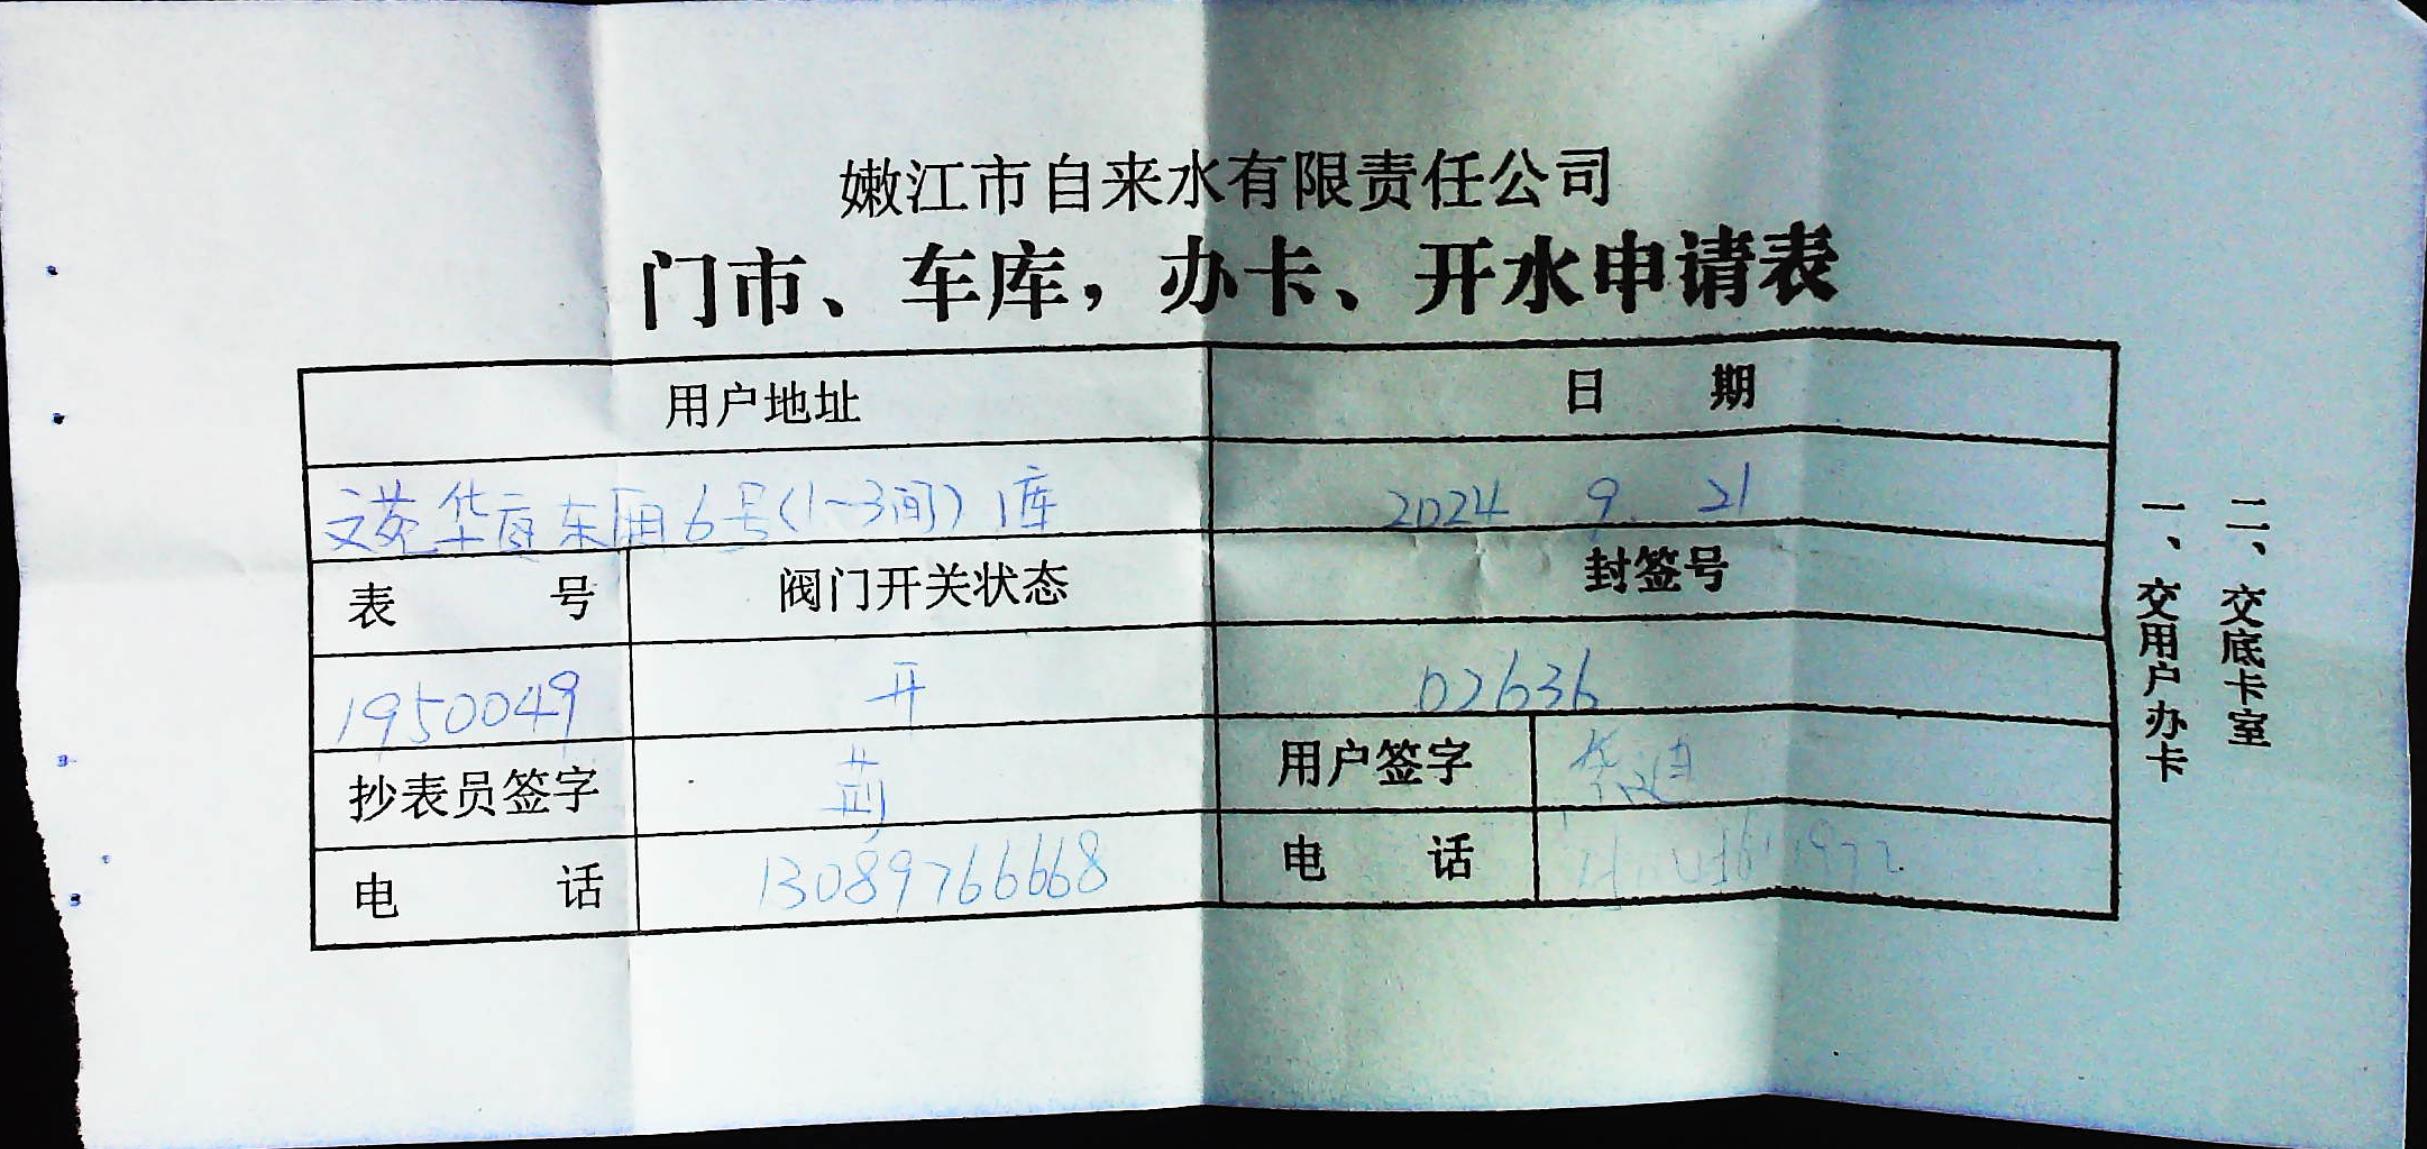 嫩江市自来水有限责任公司
门市、车库，办卡、开水申请表
用户地址 日 期
文苑华庭东厢6号(1~3间)1库 2024 9. 21
表 号 阀门开关状态 封签号
1950049 开 02636
抄表员签字 用户签字
电 话 13089766668 电 话
一、交用户办卡
二、交底卡室